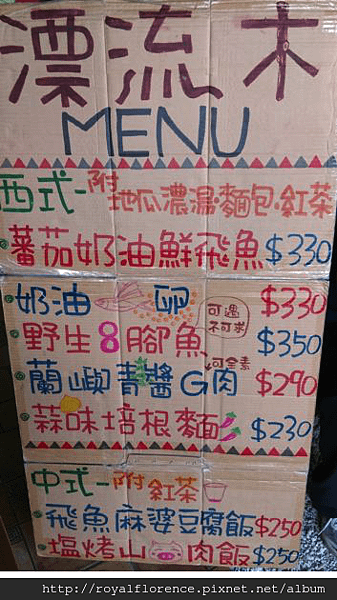 漂流木
MENU
西式-附地瓜濃湯·麵包·紅茶
蕃茄奶油鮮飛魚$330
奶油 卵 可遇不可求 $330
野生8腳魚 $350
蘭嶼青醬G肉 可全素 $290
蒜味培根麵 $230
中式-附紅茶
飛魚麻婆豆腐飯$250
塩烤山 肉飯$250
http://royalflorence.pixnet.net/album